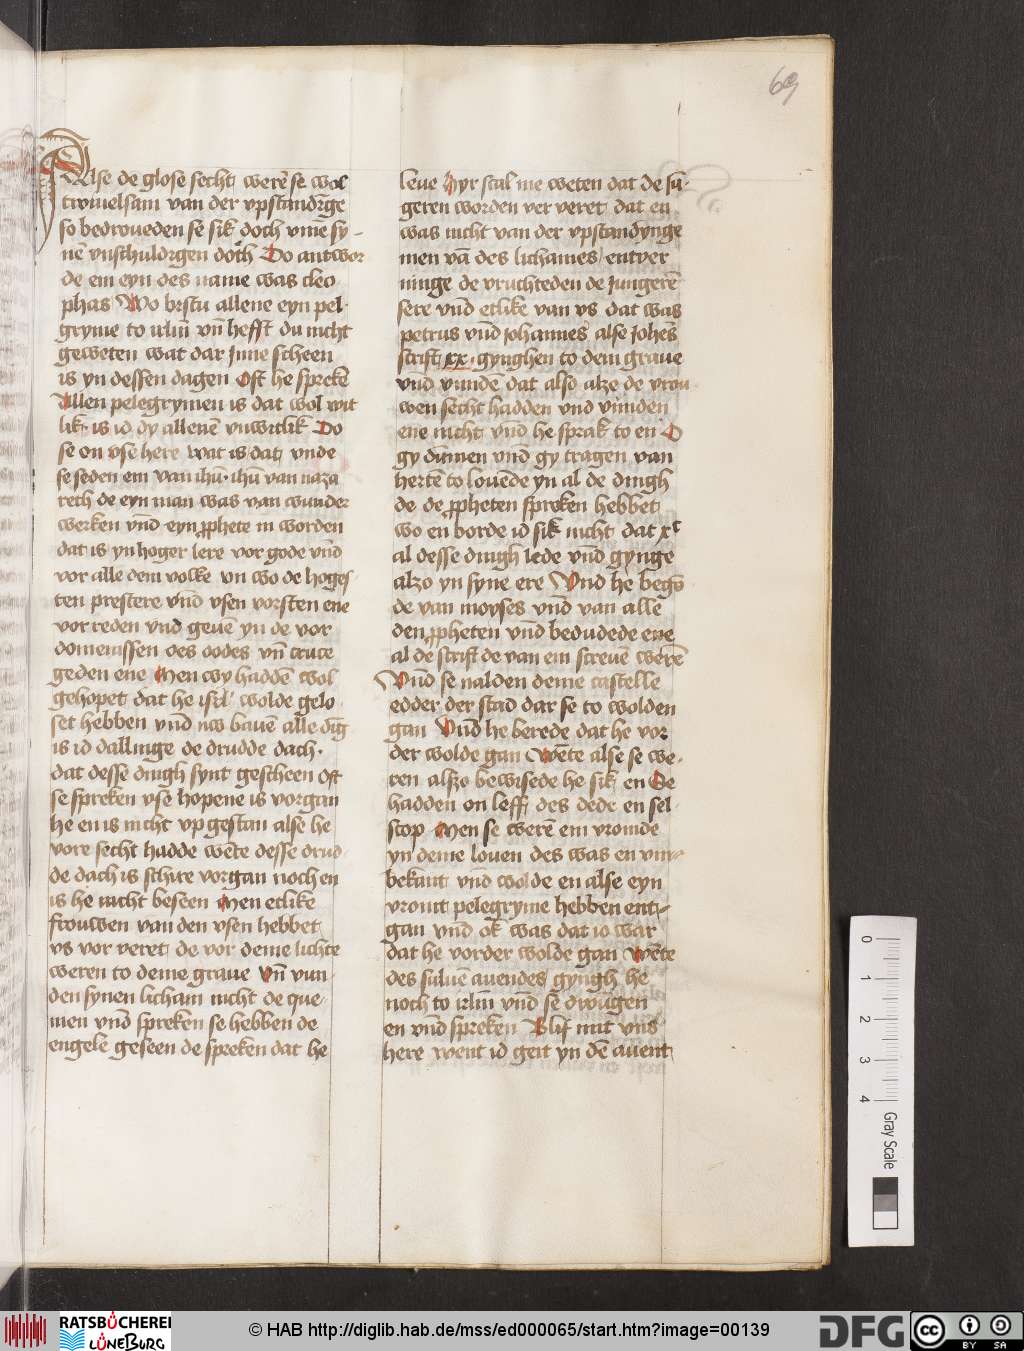 69
Alse de glose secht werē se wol
twiuelsam van der vpstandīge
so bedroueden se sik doch vme sy-
nē vnschuldigen doth Do antwor
de em eyn des name was cleo
phas Wo bistu allene eyn pel-
gryme to irlm̄ vn̄ hefft du nicht
geweten wat dar jnne scheen
is yn dessen dagen Oft he sprekē
Allen pelegrymen is dat wol wit
lik is id dy allenē vnwitlik Do
se on vsē here wat is dat vnde
se seden em van ihū ihū van naza
reth de eyn man was van wunder
werken vn̄d eyn ꝓphete in worden
dat is yn hoger lere vor gode vn̄d
vor alle dem volke vn wo de hoges
ten prestere vn̄d vsen vorsten ene
vorreden vnd geuē yn de vor
domenissen des dodes vn̄ cruce
geden ene Men wy haddē wol
gehopet dat he isrl' wolde gelo
set hebben vn̄d nw bauē alle dīg
is id dallinge de drudde dach
dat desse dingh synt gescheen Oft
se spreken vse hopene is vorgan
he en is nicht vp gestan alse he
vore secht hadde wēte desse drud
de dach is schire vorgan noch en
is he nicht beseen Men etlike
frouwen van den vsen hebbet
vs vor veret de vor deme lichte
weren to deme graue vn̄ vun
den synen licham nicht de que-
men vnd spreken se hebben de
engele geseen de spreken dat he
leue Hyr scal me weten dat de iū-
geren worden ver veret dat en
was nicht van der vpstandynge
men vā des lichames entver
ninge de vruchteden de jungerē
sere vn̄d etlike van vs dat was
petrus vn̄d johannes alse johēs
scrift xx gynghen to dem graue
vn̄d vundē dat also alze de vrou
wen secht hadden vnd vunden
ene nicht vn̄d he sprak to en O
gy dūmen vn̄d gy tragen van
hertē to louēde yn al de dingh
de de ꝓpheten spreken hebbet
wo en borde id sik nicht dat xc
al desse dingh lede vn̄d gynge
alzo yn syne ere Vnd he begō
de van moyses vn̄d van alle
den ꝓpheten vn̄d bedudede ene
al de scrift de van em screuē werē
Vn̄d se nalden deme castelle
edder der stad dar se to wolden
gan Vn̄d he berede dat he vor
der wolde gan Wēte alse se we-
ren alszo bewisede he sik en Se
hadden on leff des dede en sel-
scop Men se werē em vromde
yn deme louen des was en vm-
bekant vn̄d wolde en alse eyn
vromt pelegryme hebben ent-
gan vn̄d ok was dat jo war
dat he vorder wolde gan Wēte
des suluē auendes gyngh he
noch to irlm̄ vn̄d se dwūgen
en vn̄d spreken Blif mit vns
here went id geit yn dē auent
0
1
2
3
4
Gray Scale
RATSBÜCHEREI
LÜNEBURG
© HAB http://diglib.hab.de/mss/ed000065/start.htm?image=00139
DFG
cc
BY SA